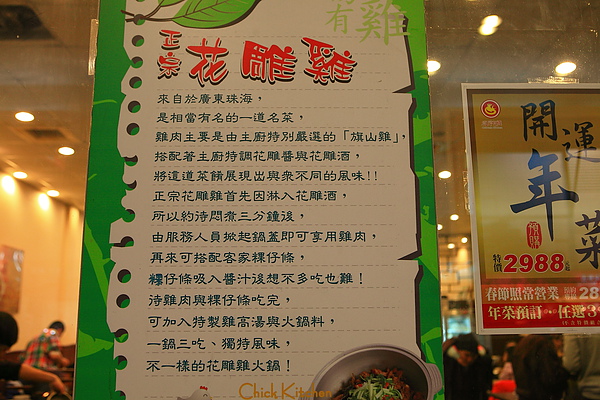 有雞
正宗花雕雞
來自於廣東珠海，
是相當有名的一道名菜，
雞肉主要是由主廚特別嚴選的「旗山雞」，
搭配著主廚特調花雕醬與花雕酒，
將這道菜餚展現出與眾不同的風味!!
正宗花雕雞首先因淋入花雕酒，
所以約待悶煮三分鐘後，
由服務人員掀起鍋蓋即可享用雞肉，
再來可搭配客家粿仔條，
粿仔條吸入醬汁後想不多吃也難！
待雞肉與粿仔條吃完，
可加入特製雞高湯與火鍋料，
一鍋三吃、獨特風味，
不一樣的花雕雞火鍋！
Chick Kitchen
開運
年菜
預購
特價2988起
春節照常營業
年菜預訂 任選3